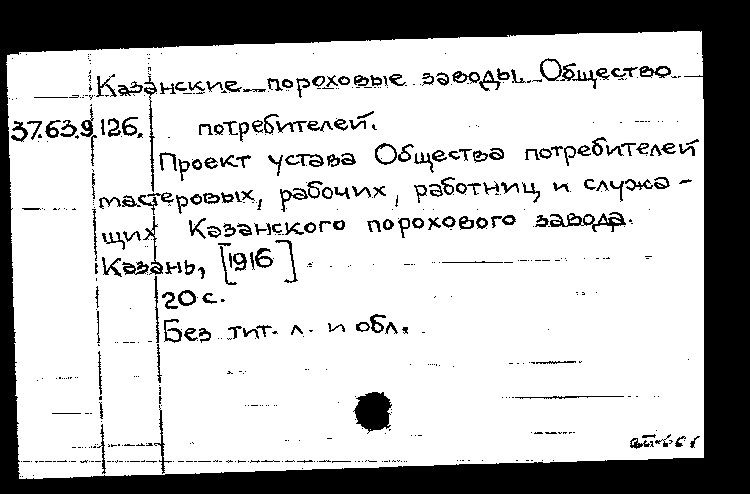 Казанские пороховые заводы. Общество
37.63.9.126. потребителей.
Проект устава Общества потребителей
мастеровых, рабочих, работниц и служа-
щих Казанского порохового завода.
Казань, [1916]
20 с.
Без тит. л. и обл.